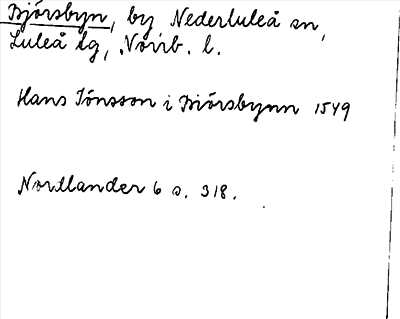 Björsbyn, by, Nederluleå sn,
Luleå tg, Norrb. l.
Hans Jönsson i Biörsbynn 1549
Nordlander 6 s. 318.